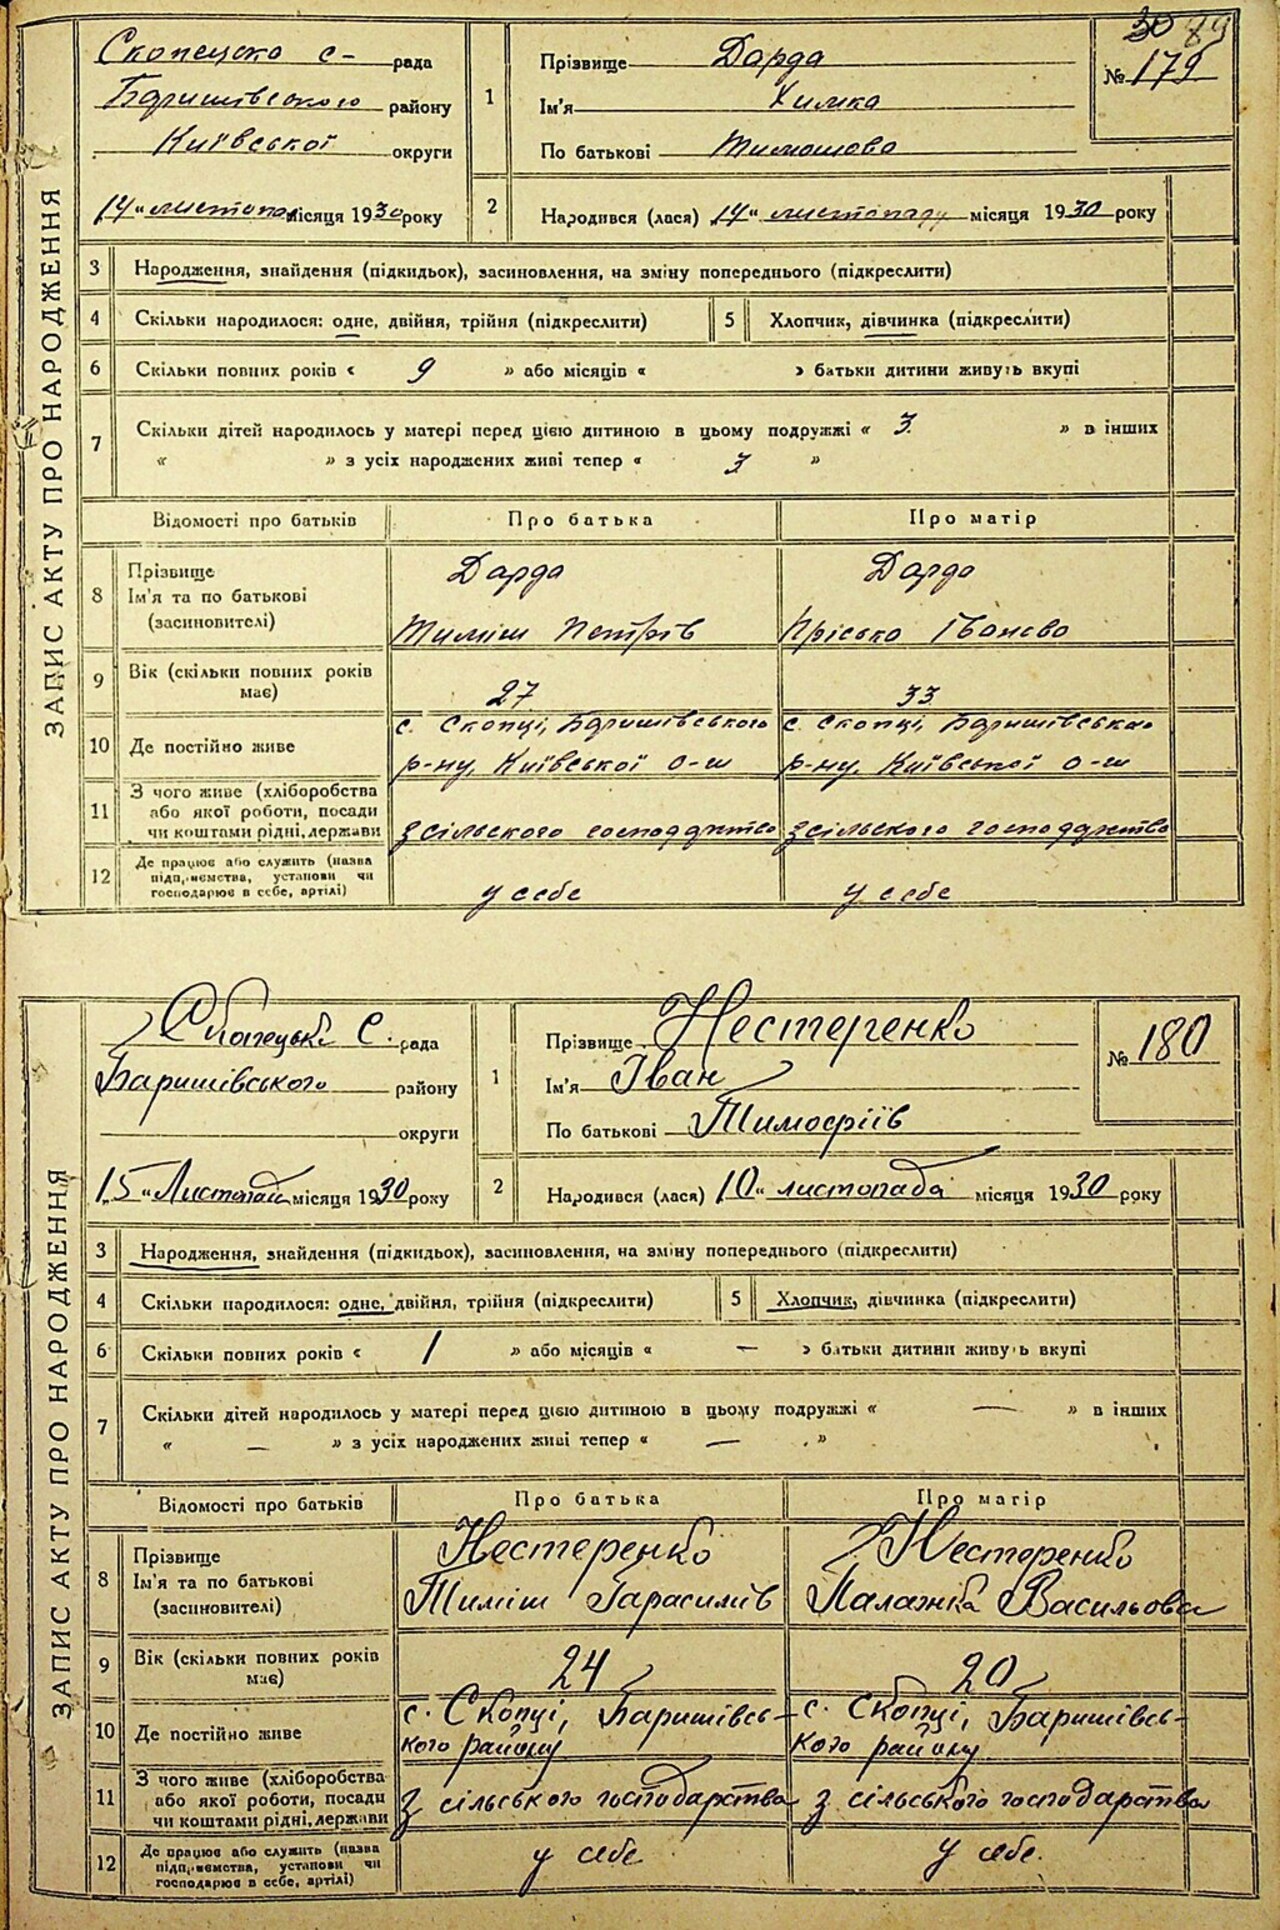 ЗАПИС АКТУ ПРО НАРОДЖЕННЯ
Скопецька с- рада
Баришівського району
Київської округи
14 „ листопа місяця 1930 року
1
Прізвище Дарда
Ім'я Химка
По батькові Тимошова
№ 179
2
Народився (лася) 14 „ листопаду місяця 1930 року
3 Народження, знайдення (підкидьок), засиновлення, на зміну попереднього (підкреслити)
4 Скільки народилося: одне, двійня, трійня (підкреслити) 5 Хлопчик, дівчинка (підкреслити)
6 Скільки повних років « 9 » або місяців « » батьки дитини живуть вкупі
7 Скільки дітей народилось у матері перед цією дитиною в цьому подружжі « 3 » в інших
« » з усіх народжених живі тепер « 3 »
Відомості про батьків Про батька Про матір
8 Прізвище Ім'я та по батькові (засиновителі)
Дарда Дарда
Тиміш Петрів Пріська Іванова
9 Вік (скільки повних років має) 27 33
10 Де постійно живе
с. Скопці, Баришівського с. Скопці, Баришівського
р-ну, Київської о-ги р-ну, Київської о-ги
11 З чого живе (хліборобства або якої роботи, посади чи коштами рідні, держави
з сільского господарства з сільского господарства
12 Де працює або служить (назва підприємства, установи чи господарює в себе, артілі)
у себе у себе
ЗАПИС АКТУ ПРО НАРОДЖЕННЯ
Скопецька С. рада
Баришівського району
округи
15 „ Листопада місяця 1930 року
1
Прізвище Нестеренко
Ім'я Іван
По батькові Тимофіїв
№ 180
2
Народився (лася) 10 „ листопада місяця 1930 року
3 Народження, знайдення (підкидьок), засиновлення, на зміну попереднього (підкреслити)
4 Скільки народилося: одне, двійня, трійня (підкреслити) 5 Хлопчик, дівчинка (підкреслити)
6 Скільки повних років « 1 » або місяців « — » батьки дитини живуть вкупі
7 Скільки дітей народилось у матері перед цією дитиною в цьому подружжі « — » в інших
« — » з усіх народжених живі тепер « — »
Відомості про батьків Про батька Про матір
8 Прізвище Ім'я та по батькові (засиновителі)
Нестеренко Нестеренко
Тиміш Гарасимів Палажка Васильова
9 Вік (скільки повних років має) 24 20
10 Де постійно живе
с. Скопці, Баришівсь- с. Скопці, Баришівсь-
кого району кого району
11 З чого живе (хліборобства або якої роботи, посади чи коштами рідні, держави
З сільського господарства з сільського господарства
12 Де працює або служить (назва підприємства, установи чи господарює в себе, артілі)
у себе у себе.